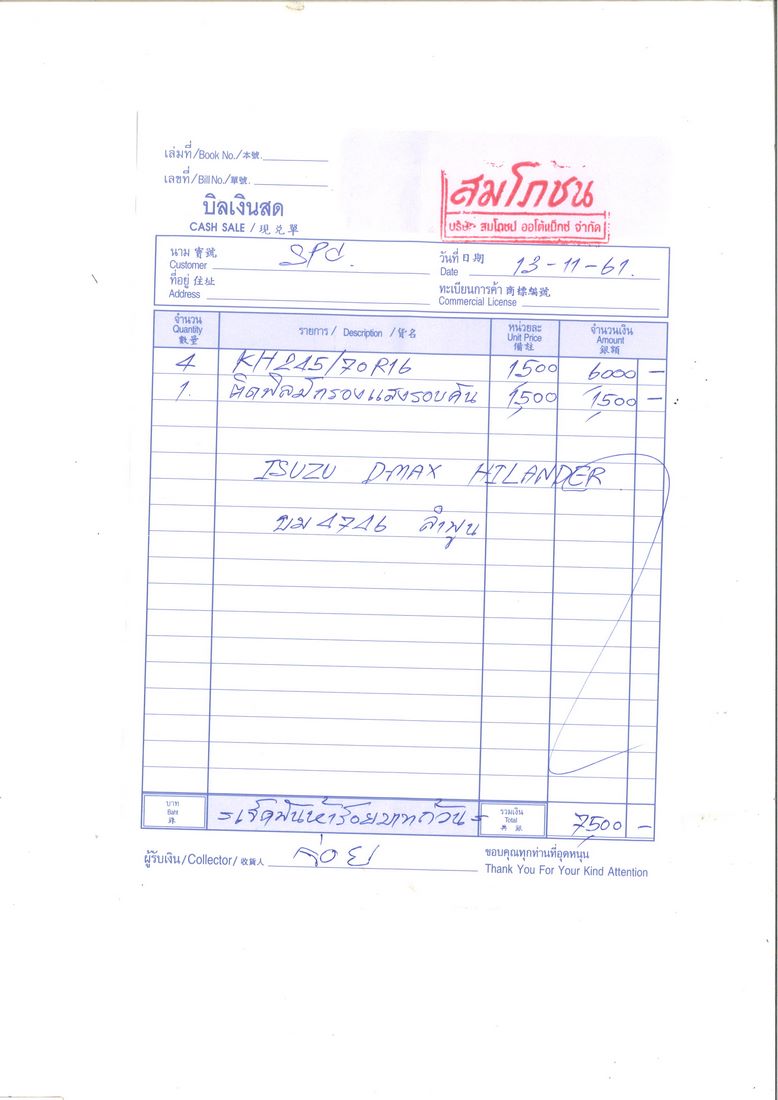 เล่มที่/Book No./本號.
เลขที่/Bill No./單號.
บิลเงินสด
CASH SALE / 現兑單
สมโภชน
บริษัท สมโภชน ออโต้แม็กซ์ จำกัด
นาม 寶號 Customer SPC.
วันที่ 日期 Date 13-11-61.
ที่อยู่ 住址 Address
ทะเบียนการค้า 商標編號 Commercial License
จำนวน Quantity 數量 รายการ / Description / 貨名 หน่วยละ Unit Price 備註 จำนวนเงิน Amount 銀額
4 KH 245/70R16 1500 6000 -
1. ติดฟิลม์กรองแสงรอบคัน 1500 1500 -
ISUZU D-MAX HILANDER
บม 4746 ลำพูน
บาท Baht 銖 =เจ็ดพันห้าร้อยบาทถ้วน= รวมเงิน Total 共銀 7500 -
ผู้รับเงิน/Collector/收貨人
ขอบคุณทุกท่านที่อุดหนุน
Thank You For Your Kind Attention